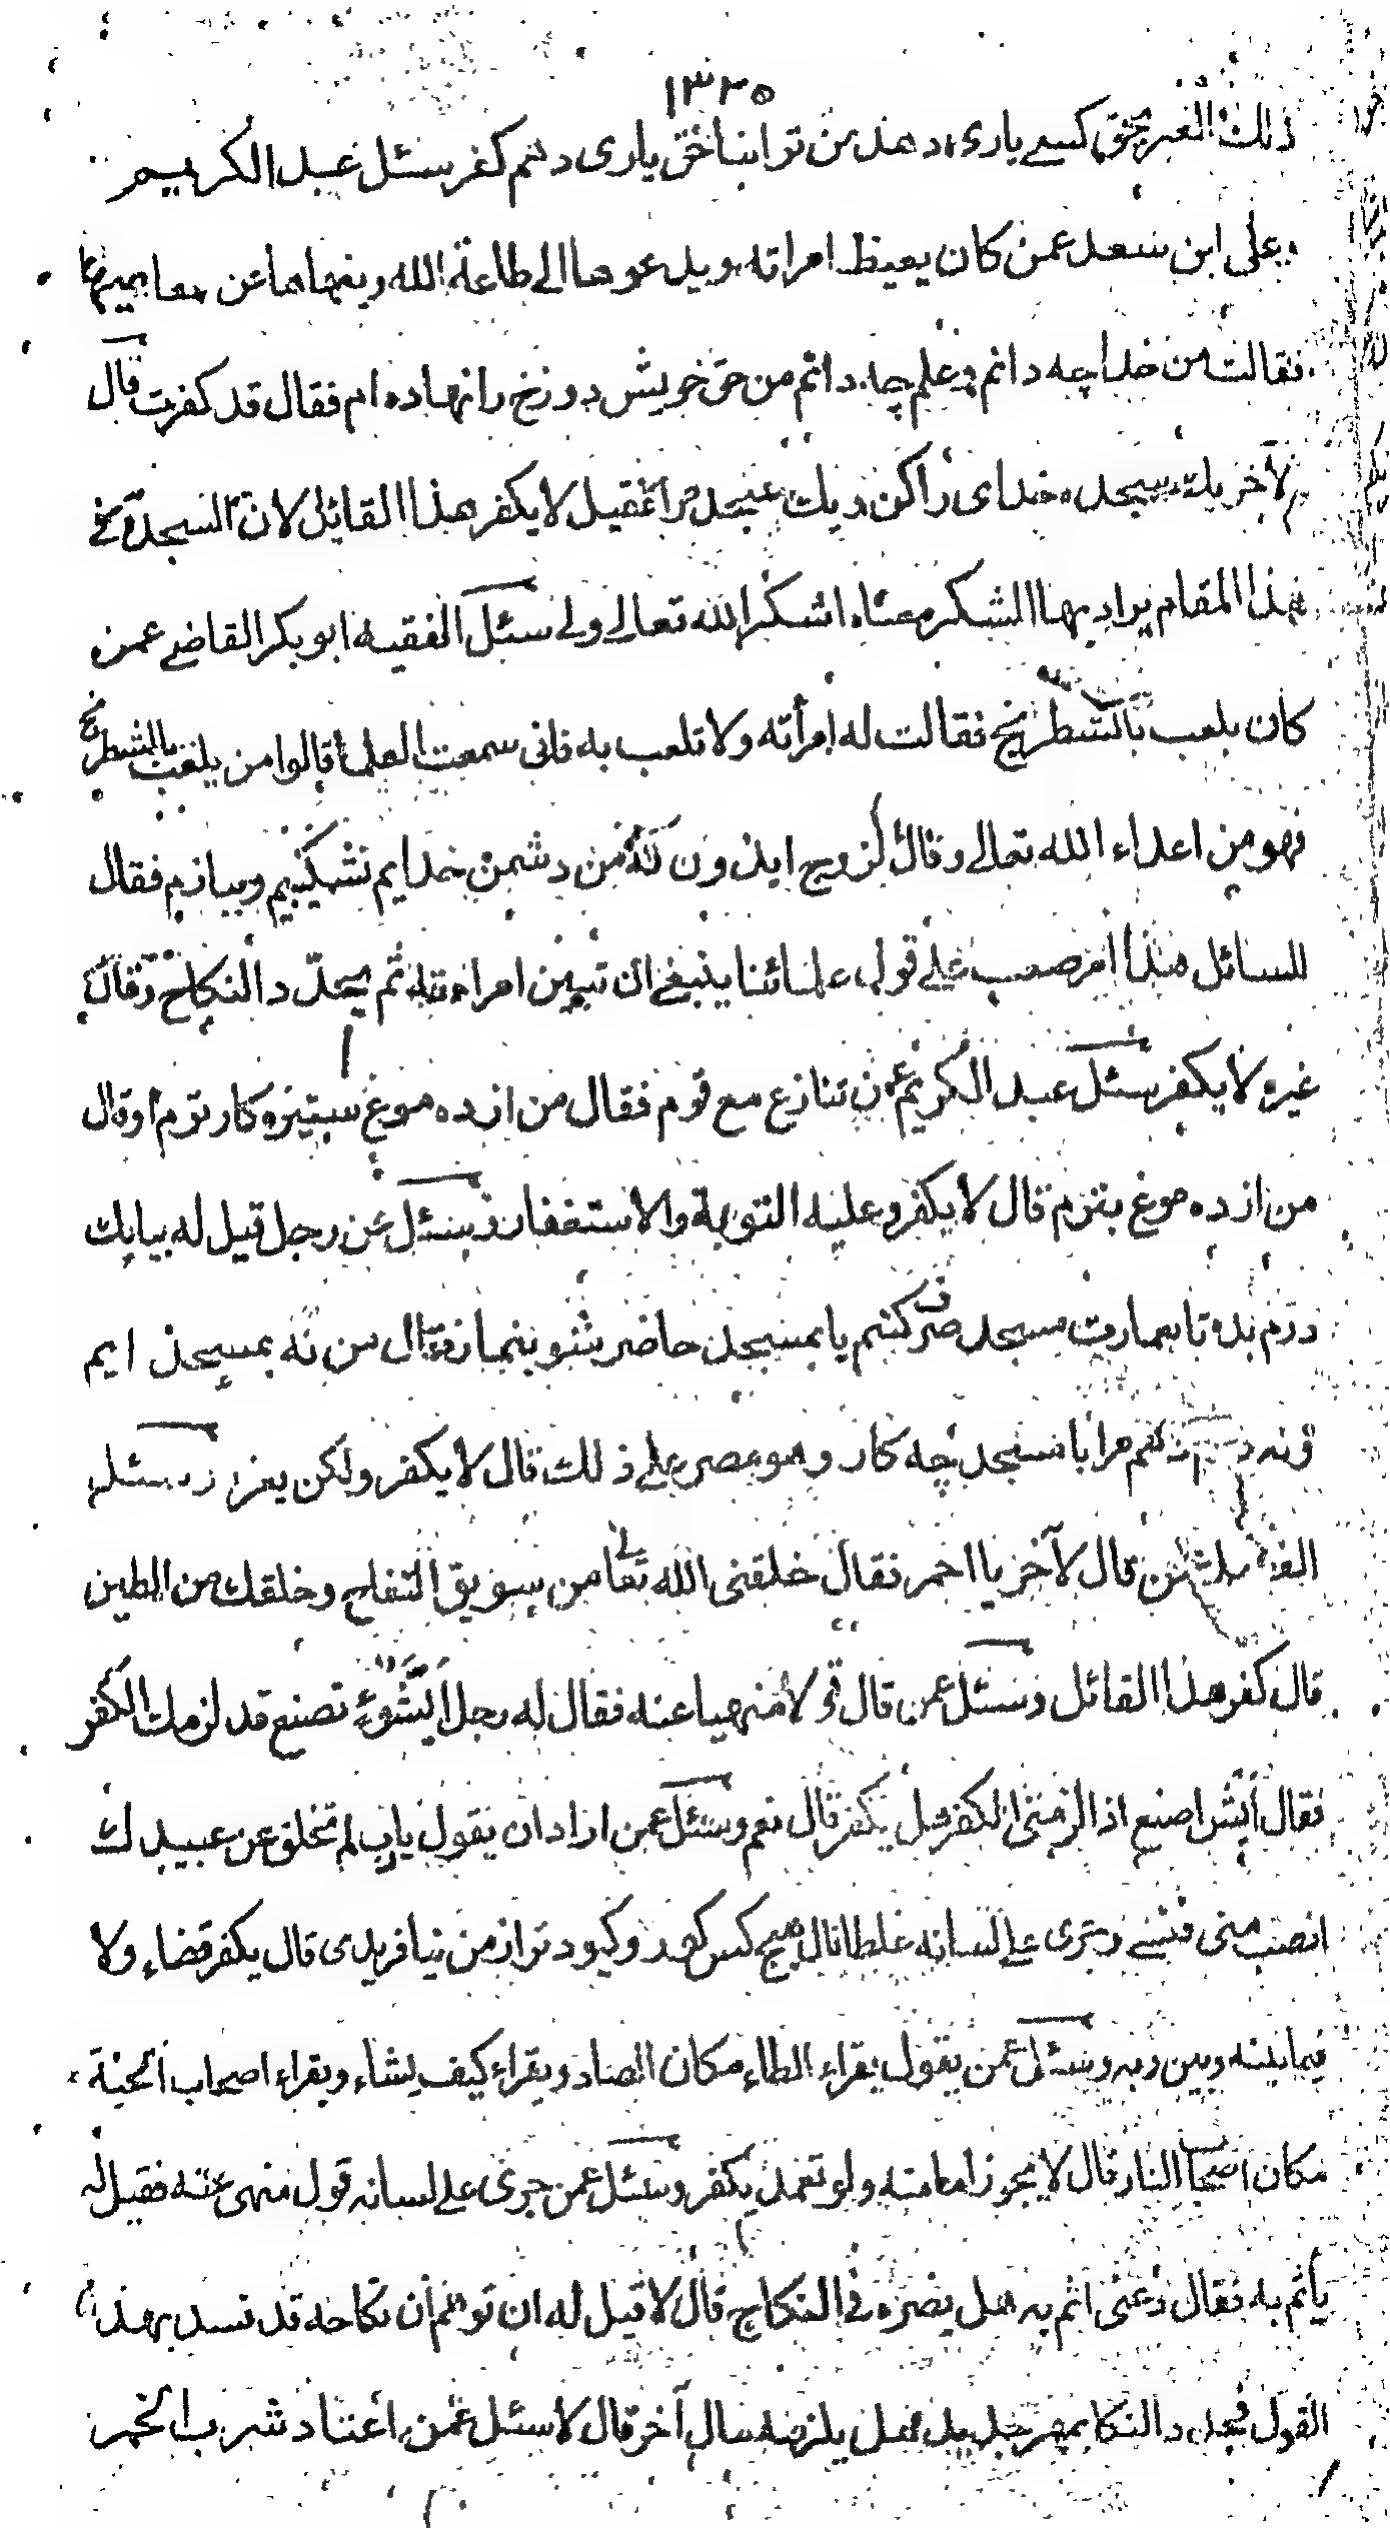 ١٣٢٥
ذلك الغير بحق كسے یاری دهد من ترا بناحق یاری دهم كفر سئل عبد الكريم
وعلى ابن سعد عمن كان يعيظ امراته ويدعوها الى طاعة الله وينهاها عن معاصيها
فقالت من خدا چه دانم وعلم چه دانم من حق خویش دوزخ را نهاده ام فقال قد كفرت قال
لآخر یك سجده خدای را كن ویك سجده مرا فقيل لا يكفر هذا القائل لان السجدة فى
هذا المقام يراد بها الشكر معناه اشكر الله تعالى ولى سئل الفقيه ابو بكر القاضے عمن
كان يلعب بالشطرنج فقالت له امرأته ولا تلعب به فانى سمعت العلما قالوا من يلعب بالشطرنج
فهو من اعداء الله تعالى وقال لزوج ايذون كه من دشمن خدايم نشكيبم وبيازم فقال
للسائل هذا امر صعب على قول علمائنا ينبغى ان تبين امراءته ثم يجدّد النكاح وقال
غيره لا يكفر سئل عبد الكريم عمن تنازع مع قوم فقال من ازده موغ ستيزه كار ترم او قال
من ازده موغ بترم قال لا يكفر وعليه التوبة والاستغفار وسئل عن رجل قيل له بیا یك
درم بده تا بعمارت مسجد صرف كنيم يا بمسجد حاضر شو بنماز فقال من نه بمسجد ايم
ونه درم دهم مرا با مسجد چه كار وهو مصر على ذلك قال لا يكفر ولكن يعزر وسئل
عمن قال لآخر يا احمر فقال خلقنى الله تعا من سويق التفاح وخلقك من الطين
قال كفر هذا القائل وسئل عمن قال قولا منهيا عنه فقال له رجل ايشوء تصنع قد لزمك الكفر
فقال أيش اصنع اذا لزمنى الكفر هل يكفر قال نعم وسئل عمن اراد ان يقول يارب لم تخلق عن عبيدك
انصب منى فنسے وجرى على لسانه غلطا قال هيچ كس كهد وكبود تر از من نيافريدى قال يكفر قضاء ولا
فيما بينه وبين ربه وسئل عمن يقول يقراء الظاء مكان الضاد ويقراء كيف يشاء ويقراء اصحاب الجنة
مكان اصحا النار قال لا يجوز امامته ولو تعمد يكفر وسئل عمن جرى على لسانه قول منهى عنه فقيل له
يأثم به فقال دعنى اثم به هل يضره فى النكاج قال لا قيل له ان توهم أن نكاحه قد فسد بهذا
القول فيجدد النكا بمهر جديد هل يلزمه مال آخر قال لا سئل عمن اعتاد شرب الخمر